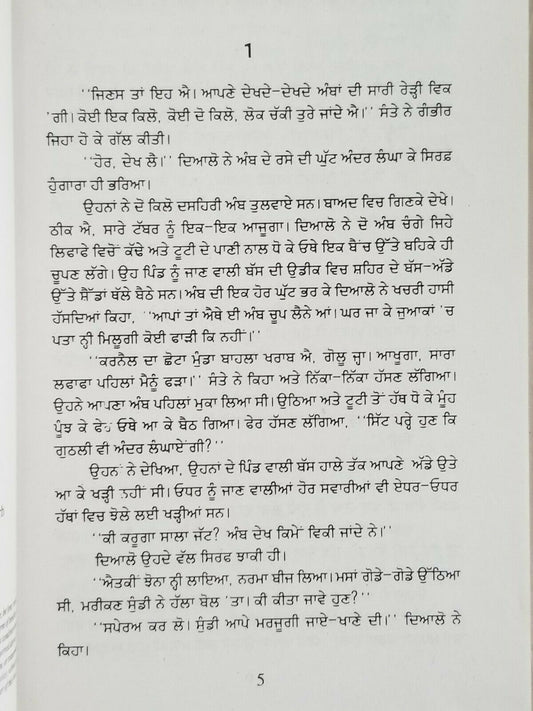 1
''ਜਿਣਸ ਤਾਂ ਇਹ ਐ। ਆਪਣੇ ਦੇਖਦੇ-ਦੇਖਦੇ ਅੰਬਾਂ ਦੀ ਸਾਰੀ ਰੇੜ੍ਹੀ ਵਿਕ
'ਗੀ। ਕੋਈ ਇਕ ਕਿਲੋ, ਕੋਈ ਦੋ ਕਿਲੋ, ਲੋਕ ਚੱਕੀ ਤੁਰੇ ਜਾਂਦੇ ਐ।'' ਸੰਤੇ ਨੇ ਗੰਭੀਰ
ਜਿਹਾ ਹੋ ਕੇ ਗੱਲ ਕੀਤੀ।
''ਹੋਰ, ਦੇਖ ਲੈ।'' ਦਿਆਲੋ ਨੇ ਅੰਬ ਦੇ ਰਸੇ ਦੀ ਘੁੱਟ ਅੰਦਰ ਲੰਘਾ ਕੇ ਸਿਰਫ਼
ਹੁੰਗਾਰਾ ਹੀ ਭਰਿਆ।
ਉਹਨਾਂ ਨੇ ਦੋ ਕਿਲੋ ਦਸਹਿਰੀ ਅੰਬ ਤੁਲਵਾਏ ਸਨ। ਬਾਅਦ ਵਿਚ ਗਿਣਕੇ ਦੇਖੇ।
ਠੀਕ ਐ, ਸਾਰੇ ਟੱਬਰ ਨੂੰ ਇਕ-ਇਕ ਆਜੂਗਾ। ਦਿਆਲੋ ਨੇ ਦੋ ਅੰਬ ਚੰਗੇ ਜਿਹੇ
ਲਿਫਾਫੇ ਵਿਚੋਂ ਕੱਢੇ ਅਤੇ ਟੂਟੀ ਦੇ ਪਾਣੀ ਨਾਲ ਧੋ ਕੇ ਓਥੇ ਇਕ ਬੈਂਚ ਉੱਤੇ ਬਹਿਕੇ ਹੀ
ਚੂਪਣ ਲੱਗੇ। ਉਹ ਪਿੰਡ ਨੂੰ ਜਾਣ ਵਾਲੀ ਬੱਸ ਦੀ ਉਡੀਕ ਵਿਚ ਸ਼ਹਿਰ ਦੇ ਬੱਸ-ਅੱਡੇ
ਉੱਤੇ ਸ਼ੈੱਡਾਂ ਥੱਲੇ ਬੈਠੇ ਸਨ। ਅੰਬ ਦੀ ਇਕ ਹੋਰ ਘੁੱਟ ਭਰ ਕੇ ਦਿਆਲੋ ਨੇ ਖਚਰੀ ਹਾਸੀ
ਹੱਸਦਿਆਂ ਕਿਹਾ, ''ਆਪਾਂ ਤਾਂ ਐਥੇ ਈ ਅੰਬ ਚੂਪ ਲੈਨੇ ਆਂ। ਘਰ ਜਾ ਕੇ ਜੁਆਕਾਂ 'ਚ
ਪਤਾ ਨ੍ਹੀ ਮਿਲੂਗੀ ਕੋਈ ਫਾੜੀ ਕਿ ਨਹੀਂ।''
''ਕਰਨੈਲ ਦਾ ਛੋਟਾ ਮੁੰਡਾ ਬਾਹਲਾ ਖਰਾਬ ਐ, ਗੋਲੂ ਜ੍ਹਾ। ਆਖੂਗਾ, ਸਾਰਾ
ਲਫਾਫਾ ਪਹਿਲਾਂ ਮੈਨੂੰ ਫੜਾ।'' ਸੰਤੇ ਨੇ ਕਿਹਾ ਅਤੇ ਨਿੱਕਾ-ਨਿੱਕਾ ਹੱਸਣ ਲੱਗਿਆ।
ਉਹਨੇ ਆਪਣਾ ਅੰਬ ਪਹਿਲਾਂ ਮੁਕਾ ਲਿਆ ਸੀ। ਉਠਿਆ ਅਤੇ ਟੂਟੀ ਤੋਂ ਹੱਥ ਧੋ ਕੇ ਮੂੰਹ
ਪੂੰਝ ਕੇ ਫੇਰ ਓਥੇ ਆ ਕੇ ਬੈਠ ਗਿਆ। ਫੇਰ ਹੱਸਣ ਲੱਗਿਆ, ''ਸਿੱਟ ਪਰ੍ਹੇ ਹੁਣ ਕਿ
ਗੁਠਲੀ ਵੀ ਅੰਦਰ ਲੰਘਾਏਂਗੀ?''
ਉਹਨਾਂ ਨੇ ਦੇਖਿਆ, ਉਹਨਾਂ ਦੇ ਪਿੰਡ ਵਾਲੀ ਬੱਸ ਹਾਲੇ ਤੱਕ ਆਪਣੇ ਅੱਡੇ ਉਤੇ
ਆ ਕੇ ਖੜ੍ਹੀ ਨਹੀਂ ਸੀ। ਓਧਰ ਨੂੰ ਜਾਣ ਵਾਲੀਆਂ ਹੋਰ ਸਵਾਰੀਆਂ ਵੀ ਏਧਰ-ਓਧਰ
ਹੱਥਾਂ ਵਿਚ ਝੋਲੇ ਲਈ ਖੜ੍ਹੀਆਂ ਸਨ।
''ਕੀ ਕਰੂਗਾ ਸਾਲਾ ਜੱਟ? ਅੰਬ ਦੇਖ ਕਿਮੇਂ ਵਿਕੀ ਜਾਂਦੇ ਨੇ।''
ਦਿਆਲੋ ਉਹਦੇ ਵੱਲ ਸਿਰਫ ਝਾਕੀ ਹੀ।
''ਐਤਕੀਂ ਝੋਨਾ ਨ੍ਹੀ ਲਾਇਆ, ਨਰਮਾ ਬੀਜ ਲਿਆ। ਮਸਾਂ ਗੋਡੇ-ਗੋਡੇ ਉੱਠਿਆ
ਸੀ, ਮਰੀਕਣ ਸੁੰਡੀ ਨੇ ਹੱਲਾ ਬੋਲ 'ਤਾ। ਕੀ ਕੀਤਾ ਜਾਵੇ ਹੁਣ?''
''ਸਪੇਰਅ ਕਰ ਲੋ। ਸੁੰਡੀ ਆਪੇ ਮਰਜੂਗੀ ਜਾਏ-ਖਾਣੇ ਦੀ।'' ਦਿਆਲੋ ਨੇ
ਕਿਹਾ।
5